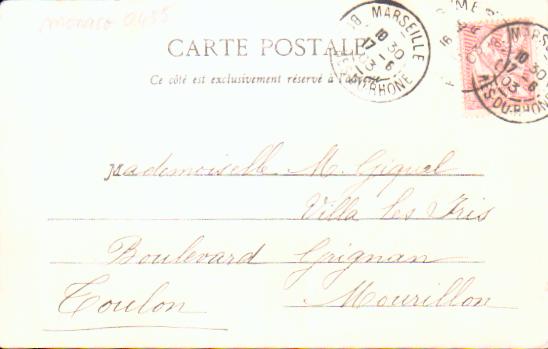 monaco 0435
CARTE POSTALE
Ce côté est exclusivement réservé à l'adresse
MARSEILLE
18 30
17 - 6
03
BES-DU-RHONE
MARS
18 30
17 - 6
03
BES-DU-RHONE
Mademoiselle M. Gignal
Villa les Iris
Boulevard Grignan
Toulon Mourillon